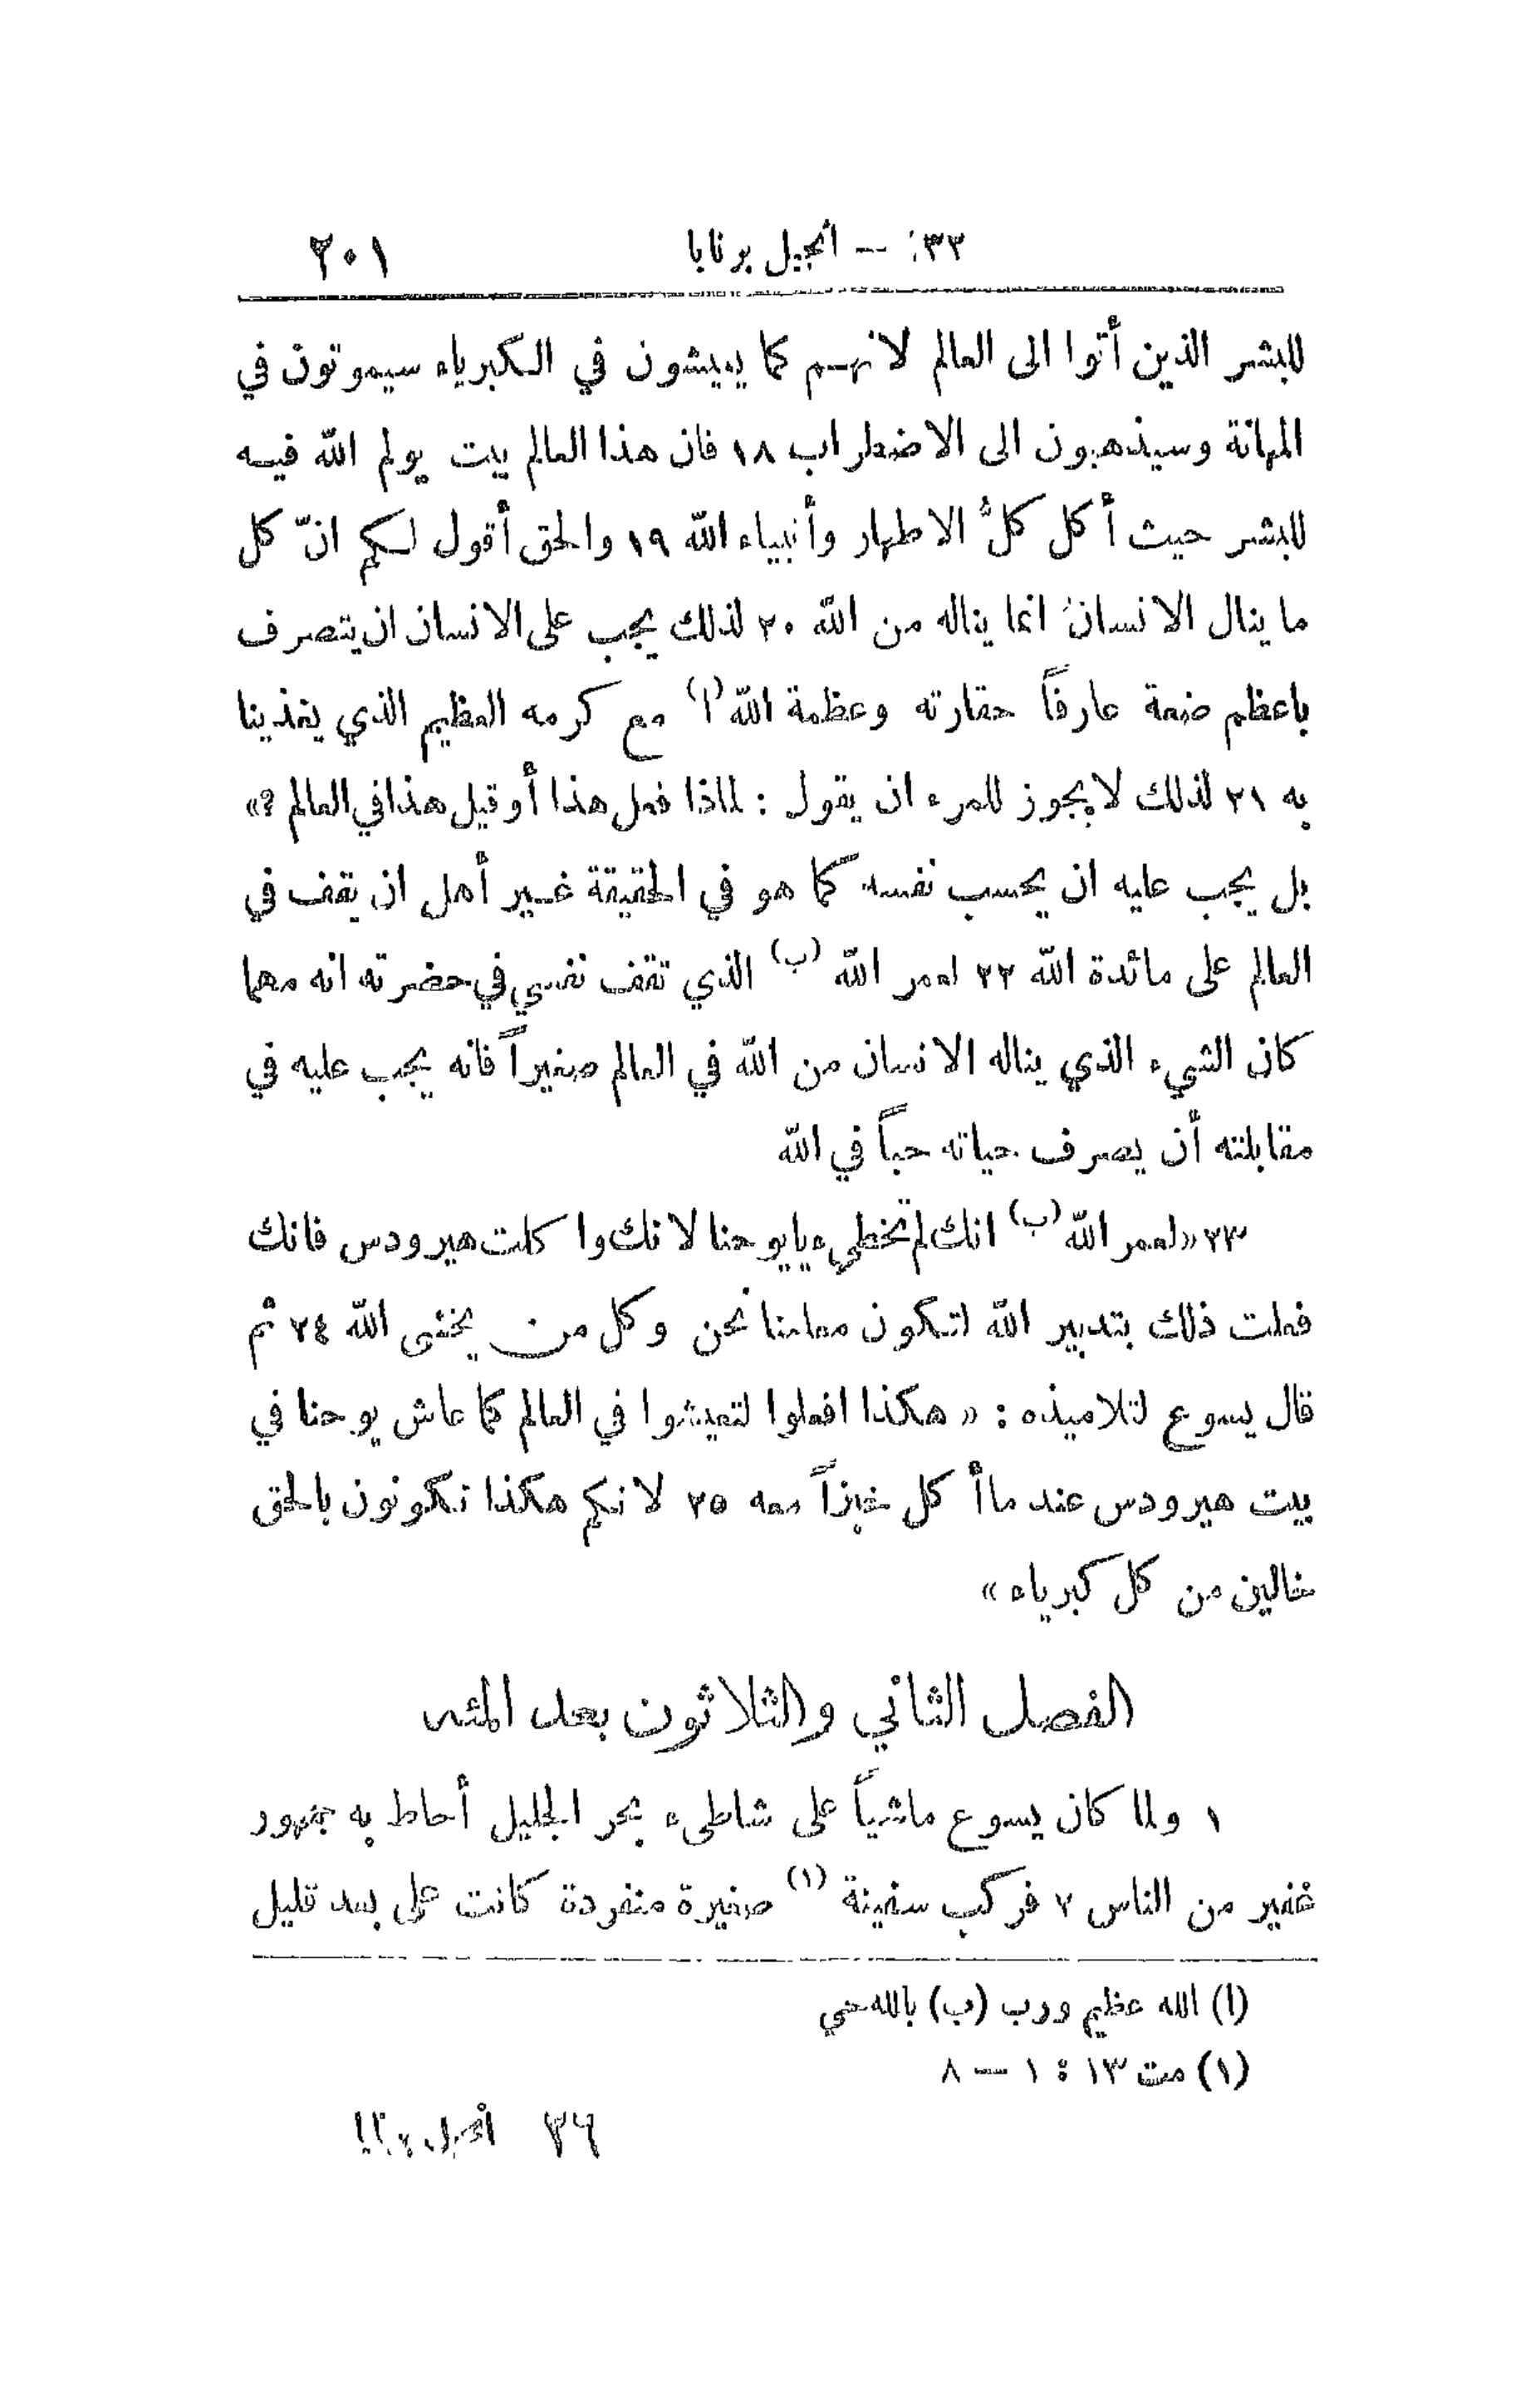 ٣٢: — انجيل برنابا ٢٠١
للبشر الذين أتوا الى العالم لانهم كما يعيشون في الكبرياء سيموتون في
المهانة وسيذهبون الى الاضطراب ١٨ فان هذا العالم بيت يولم الله فيه
للبشر حيث أكل كلُّ الاطهار وأنبياء الله ١٩ والحق أقول لكم انّ كل
ما ينال الانسانُ انما يناله من الله ٢٠ لذلك يجب على الانسان ان يتصرف
باعظم ضعة عارفاً حقارته وعظمة الله (ا) مع كرمه العظيم الذي يغذينا
به ٢١ لذلك لا يجوز للمرء ان يقول : لماذا فعل هذا أو قيل هذا في العالم ؟»
بل يجب عليه ان يحسب نفسه كما هو في الحقيقة غير أهل ان يقف في
العالم على مائدة الله ٢٢ لعمر الله (ب) الذي تقف نفسي في حضرته انه مهما
كان الشيء الذي يناله الانسان من الله في العالم صغيراً فانه يجب عليه في
مقابلته أن يصرف حياته حباً في الله
٢٣ «لعمر الله (ب) انك لم تخطيء يا يوحنا لانك واكلت هيرودس فانك
فعلت ذلك بتدبير الله لتكون معلمنا نحن وكل من يخشى الله ٢٤ ثم
قال يسوع لتلاميذه : « هكذا افعلوا لتعيشوا في العالم كما عاش يوحنا في
بيت هيرودس عند ما أكل خبزاً معه ٢٥ لانكم هكذا تكونون بالحق
خالين من كل كبرياء »
الفصل الثاني والثلاثون بعد المئة
١ ولما كان يسوع ماشياً على شاطىء بحر الجليل أحاط به جمهور
غفير من الناس ٢ فركب سفينة (١) صغيرة منفردة كانت على بعد قليل
(ا) الله عظيم ورب (ب) بالله حي
(١) مت ١٣ : ١ — ٨
٢٦ أنجيل